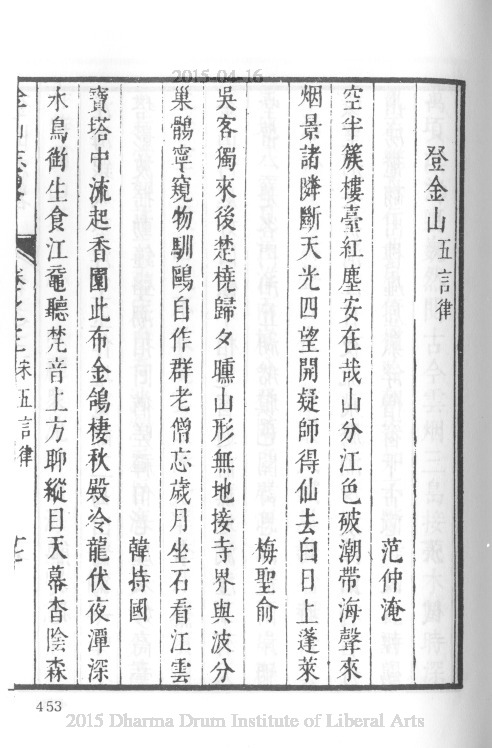 2015-04-16
登金山五言律
范仲淹
空半簇樓臺紅塵安在哉山分江色破潮帶海聲來
烟景諸隣斷天光四望開疑師得仙去白日上蓬萊
梅聖俞
吳客獨來後楚橈歸夕曛山形無地接寺界與波分
巢鶻寧窺物馴鷗自作群老僧忘歲月坐石看江雲
韓持國
寶塔中流起香園此布金鴿棲秋殿冷龍伏夜潭深
水鳥銜生食江黿聽梵音上方聊縱目天幕杳陰森
卷之三 宋五言律
453
2015 Dharma Drum Institute of Liberal Arts